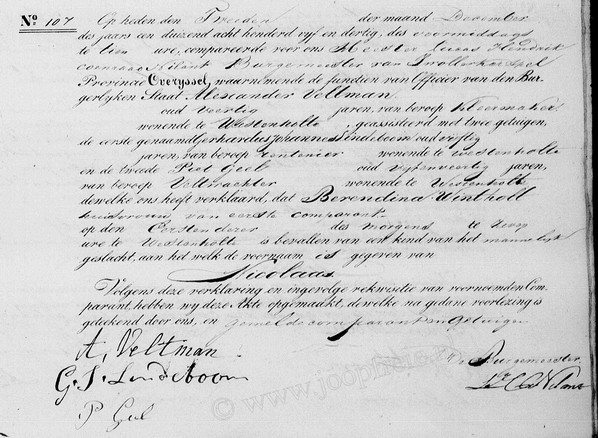 No. 107 Op heden den Tweeden der maand December
des jaars een duizend acht honderd vijf en dertig, des voormiddags
te tien ure, compareerde voor ons Meester Lucas Hendrik
Burgemeester van Zwollerkerspel
Provincie Overyssel, waarnemende de functien van Officier van den Bur-
gerlyken Staat Alexander Veltman
oud veertig jaren, van beroep Kleermaker
wonende te Westenholte, geassisteerd met twee getuigen,
de eerste genaamd Gerhardus Johannes Lindeboom oud vyftig
jaren, van beroep rentenier wonende te Westenholte
en de tweede Piet Geel oud vyfenveertig jaren,
van beroep Veltwachter wonende te Westenholte
dewelke ons heeft verklaard, dat Berendina Wintholt
huisvrouw van eerste comparant
op den Eersten dezer des morgens te
ure te Westenholte is bevallen van een kind van het mannelijk
geslacht, aan het welk de voornaam is gegeven van
Nicolaas
Volgens deze verklaring en ingevolge rekwisitie van voornoemden Com-
parant, hebben wy deze Akte opgemaakt, dewelke na gedane voorlezing is
geteekend door ons, en gemelde comparant en Getuigen
A, Veltman
G. J. Lindeboom
P Geel
Burgemeester
© www.joopnisse.nl